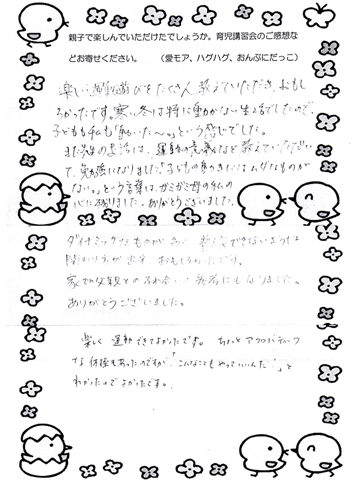 親子で楽しんでいただけたでしょうか。育児講習会のご感想な
どお寄せください。 （愛モア、ハグハグ、おんぶにだっこ）
楽しい 遊びをたくさん 教えていただき、おもし
ろかったです。寒い冬は特に動かない生活でしたので、
子どもも私も「動いた〜。」という感じでした。
また先生のお話は、運動の意義など教えていただい
て、勉強になりました。「子どもの動きにはムダなものが
ない。」という言葉は、ガミガミ母の私の
心にありました。ありがとうございました。
ダイナミックなものが できないような
関わり方が出来、おもしろかったです。
家での父親とのふれあい 参考にもなりました。
ありがとうございました。
楽しく 運動できてよかったです。 ちょっと アクロバティック
な体操もあったのですが「こんなこともやっていいんだ!」と
わかったのでよかったです。